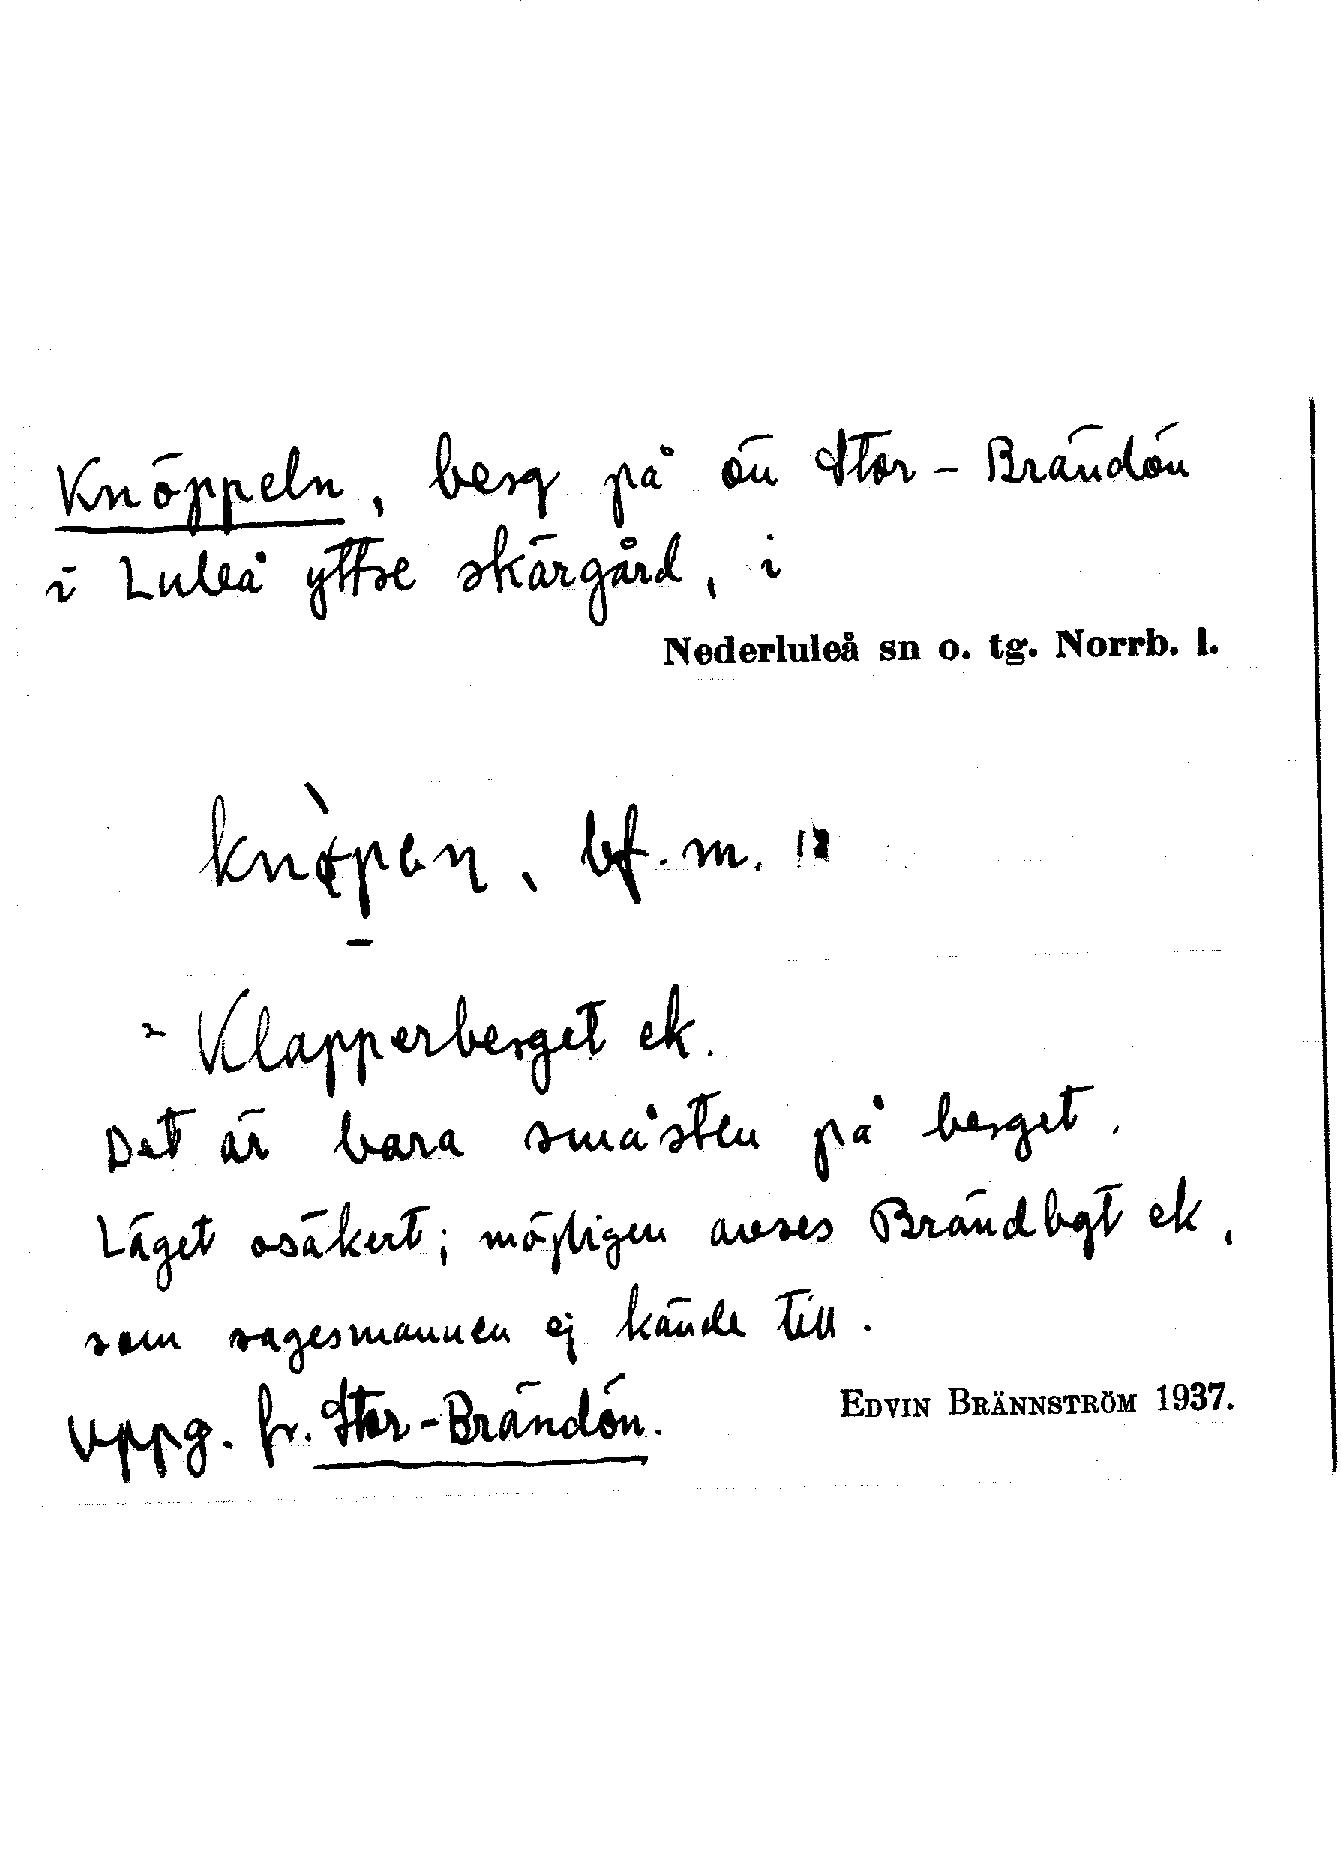 Knöppeln, berg på ön Stor-Brändön
i Luleå yttre skärgård, i
Nederluleå sn o. tg. Norrb. l.
bf. m.
= Klapperberget ek.
Det är bara småsten på berget.
Läget osäkert; möjligen avses Brändbgt ek,
som sagesmannen ej kände till.
Uppg. fr. Stor-Brändön.
EDVIN BRÄNNSTRÖM 1937.